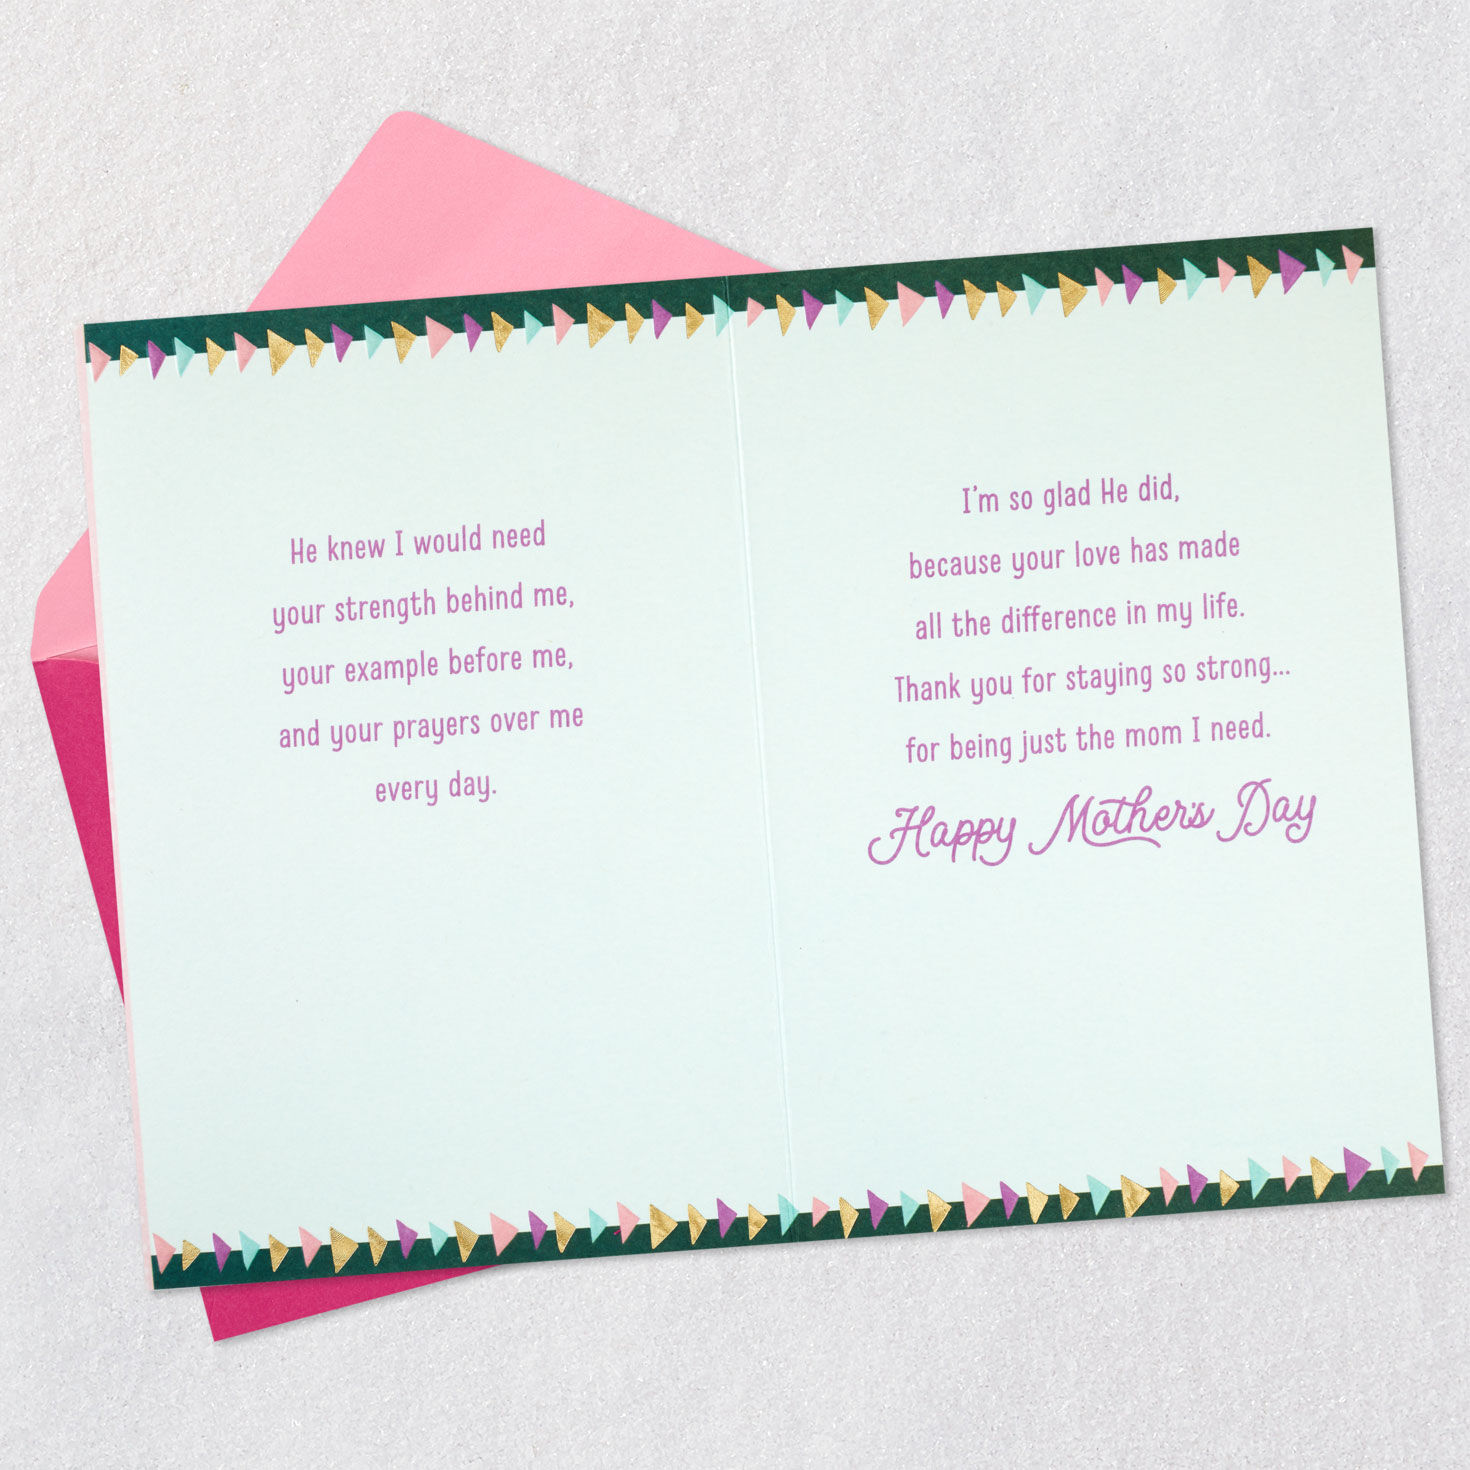 He knew I would need
your strength behind me,
your example before me,
and your prayers over me
every day.
I'm so glad He did,
because your love has made
all the difference in my life.
Thank you for staying so strong...
for being just the mom I need.
Happy Mother's Day